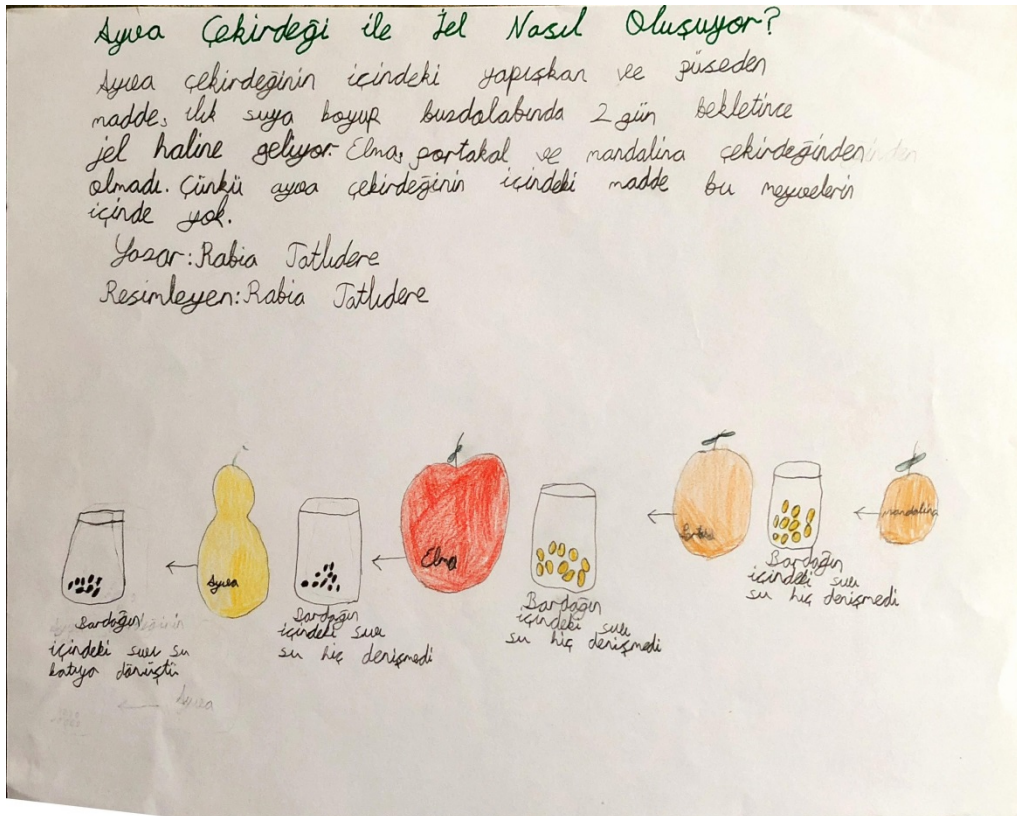 Ayva Çekirdeği ile Jel Nasıl Oluşuyor?
Ayva çekirdeğinin içindeki yapışkan ve püseden
madde, ılık suya koyup buzdalabında 2 gün bekletince
jel haline geliyor. Elma, portakal ve mandalina çekirdeğinden
olmadı. Çünkü ayva çekirdeğinin içindeki madde bu meyvelerin
içinde yok.
Yazar: Rabia Tatlıdere
Resimleyen: Rabia Tatlıdere
Ayva
Elma
mandalina
Bardağın
içindeki sıvı su
katıya dönüştü
Bardağın
içindeki sıvı
su hiç denişmedi
Bardağın
içindeki sıvı
su hiç denişmedi
Bardağın
içindeki sıvı
su hiç denişmedi
Ayva